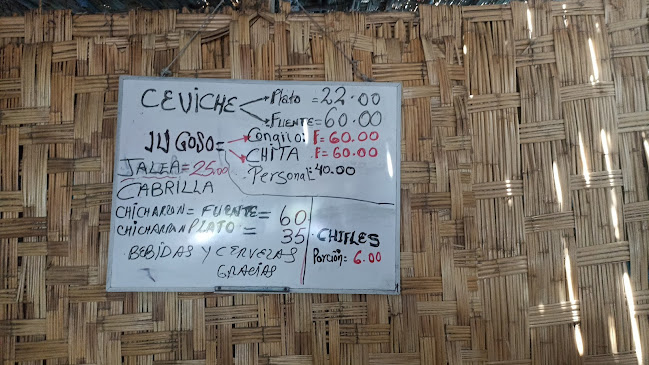 CEVICHE Plato = 22.00
FUENTE = 60.00
JUGOSO = Congrio F= 60.00
CHITA F= 60.00
Personal = 40.00
JALEA = 25.00
CABRILLA
CHICHARRON = FUENTE = 60
CHICHARRON PLATO = 35
BEBIDAS Y CERVEZAS
GRACIAS
CHIFLES
Porción = 6.00